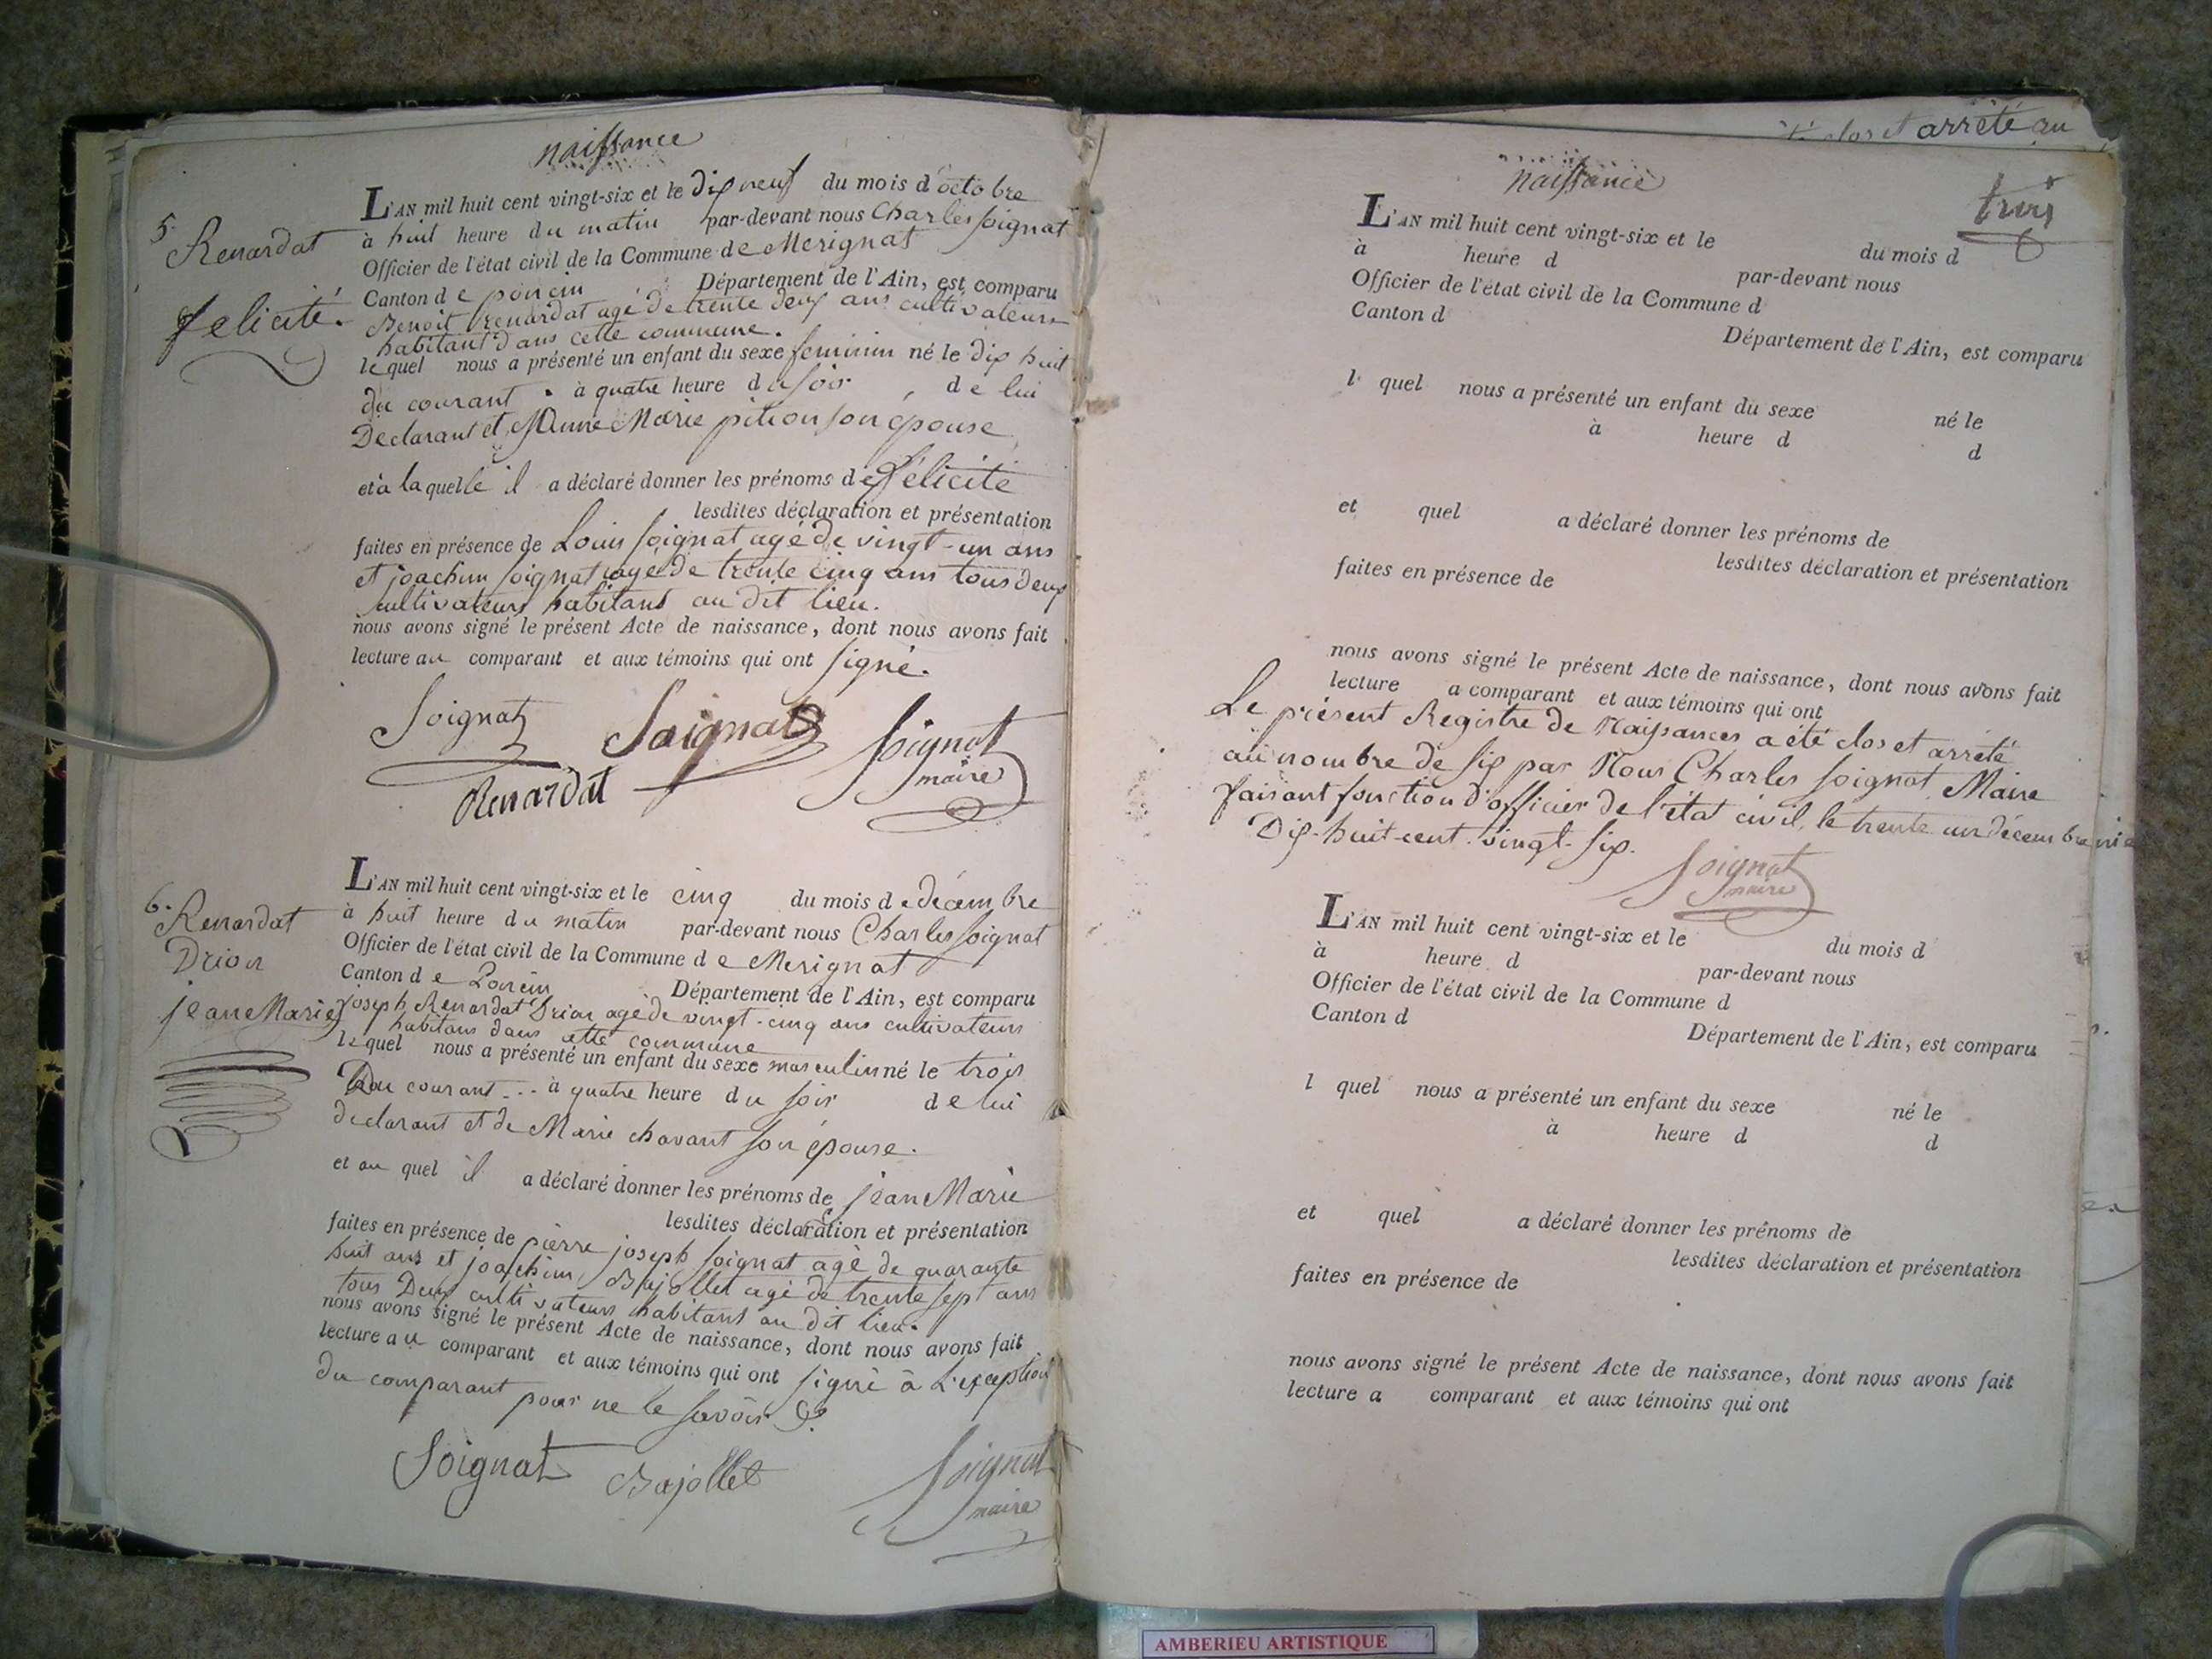 naissance
5.
Renardat
felicité.
L'AN mil huit cent vingt-six et le dix neuf du mois d'octobre
à huit heure du matin par-devant nous Charles Soignat
Officier de l'état civil de la Commune de Merignat
Canton de poncin Département de l'Ain, est comparu
Benoit renardat agé de trente deux ans cultivateurs
habitant dans cette commune.
lequel nous a présenté un enfant du sexe feminin né le dix huit
du courant à quatre heure du soir, de lui
Declarant et Anne Marie pition son épouse
et à la quelle il a déclaré donner les prénoms de félicité
lesdites déclaration et présentation
faites en présence de Louis Soignat agé de vingt-un ans
et joachim Soignat agé de trente cinq ans tous deux
cultivateurs habitans au dit lieu.
nous avons signé le présent Acte de naissance, dont nous avons fait
lecture au comparant et aux témoins qui ont signé.
Soignat Soignat Soignat
maire
Renardat
6.
Renardat
Drion
jean Marie
L'AN mil huit cent vingt-six et le cinq du mois de décembre
à huit heure du matin par-devant nous Charles Soignat
Officier de l'état civil de la Commune de Merignat
Canton de Poncin Département de l'Ain, est comparu
joseph Renardat Drion agé de vingt-cinq ans cultivateurs
habitans dans cette commune
lequel nous a présenté un enfant du sexe masculin né le trois
Du courant à quatre heure du soir de lui
declarant et de Marie chavant son épouse.
et au quel il a déclaré donner les prénoms de jean Marie
lesdites déclaration et présentation
faites en présence de pierre joseph Soignat agé de quarante
huit ans et joachim Bajollet agé de trente sept ans
tous Deux cultivateurs habitans au dit lieu.
nous avons signé le présent Acte de naissance, dont nous avons fait
lecture au comparant et aux témoins qui ont signé à L'exception
du comparant pour ne le savoir
Soignat Bajollet Soignat
maire
clos et arrêté au
naissance
trois
L'AN mil huit cent vingt-six et le du mois d
à heure d par-devant nous
Officier de l'état civil de la Commune d
Canton d Département de l'Ain, est comparu
l quel nous a présenté un enfant du sexe né le
à heure d d
et quel a déclaré donner les prénoms de
lesdites déclaration et présentation
faites en présence de
nous avons signé le présent Acte de naissance, dont nous avons fait
lecture a comparant et aux témoins qui ont
Le présent Registre de Naissances a été clos et arrêté
au nombre de six par Nous Charles Soignat Maire
faisant fonction d'officier de l'état civil, le trente un décembre
Dix-huit-cent-vingt-six.
Soignat
maire
L'AN mil huit cent vingt-six et le du mois d
à heure d par-devant nous
Officier de l'état civil de la Commune d
Canton d Département de l'Ain, est comparu
l quel nous a présenté un enfant du sexe né le
à heure d d
et quel a déclaré donner les prénoms de
lesdites déclaration et présentation
faites en présence de
nous avons signé le présent Acte de naissance, dont nous avons fait
lecture a comparant et aux témoins qui ont
AMBERIEU ARTISTIQUE